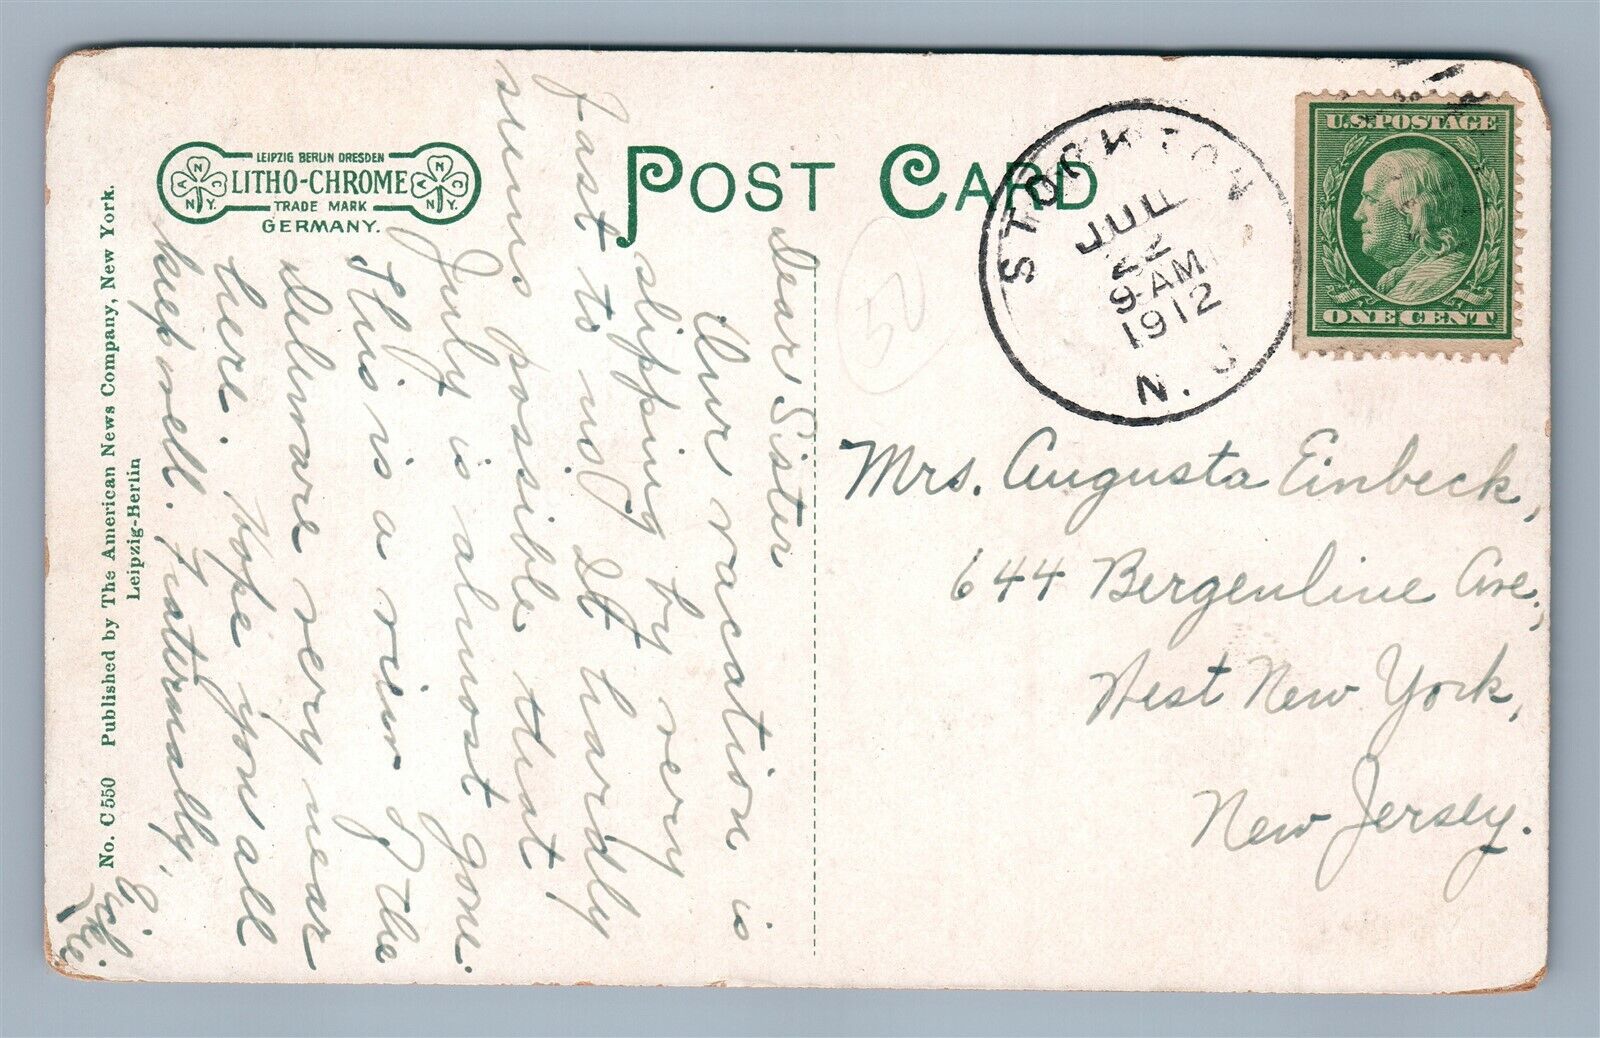 LEIPZIG BERLIN DRESDEN
LITHO-CHROME
TRADE MARK
GERMANY.
POST CARD
STOCKTON
JUL
22
9-AM
1912
N. J.
U.S.POSTAGE
ONE CENT
Mrs. Augusta Einbeck,
644 Bergenline Ave.,
West New York,
New Jersey.
Dear Sister
Our vacation is
slipping by very
fast to us. It hardly
seems possible that
July is almost gone.
This is a view of the
Delaware very near
here. Hope you all
keep well. Fraternally,
No. C 550 Published by The American News Company, New York.
Leipzig-Berlin